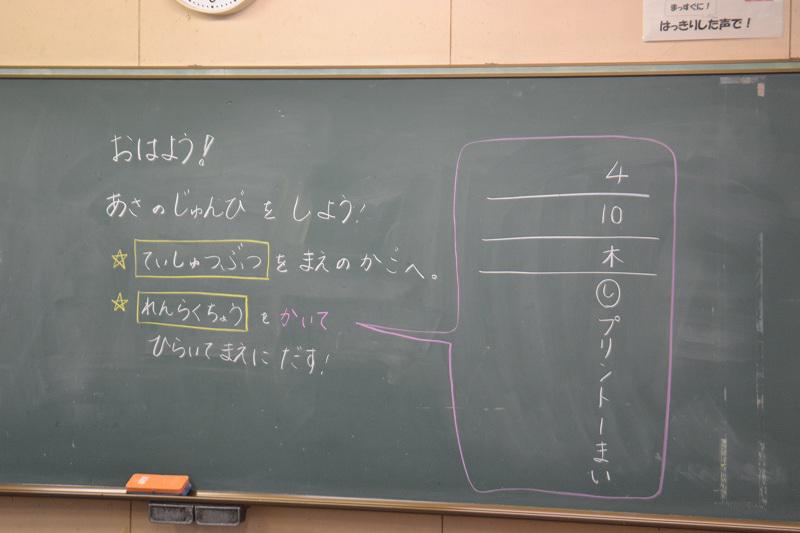 まっすぐに!
はっきりした声で!
おはよう!
あさのじゅんびをしよう!
☆ ていしゅつぶつをまえのかごへ。
☆ れんらくちょうをかいて
ひらいてまえにだす!
4
10
木
㋛プリント一まい